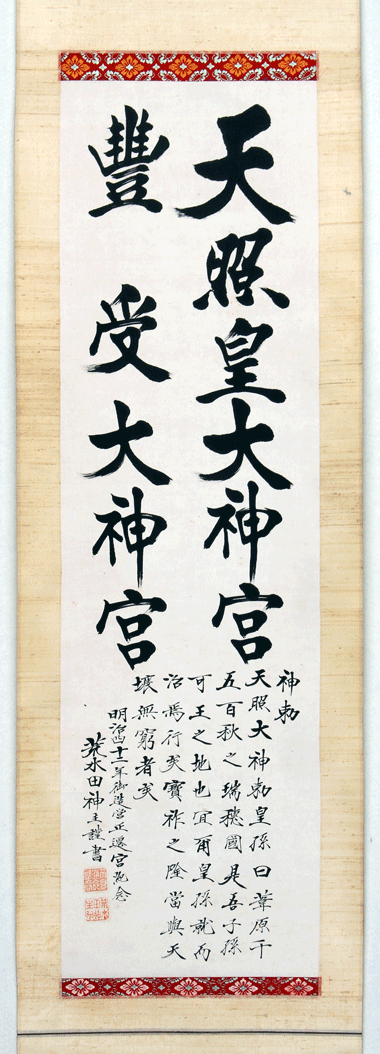 天照皇大神宮
豐受大神宮
神勅
天照大神勅皇孫曰葦原千
五百秋之瑞穗國是吾子孫
可王之地也宜爾皇孫就而
治焉行矣寶祚之隆當與天
壤無窮者矣
明治四十二年御造営正遷宮記念
荒木田神主謹書